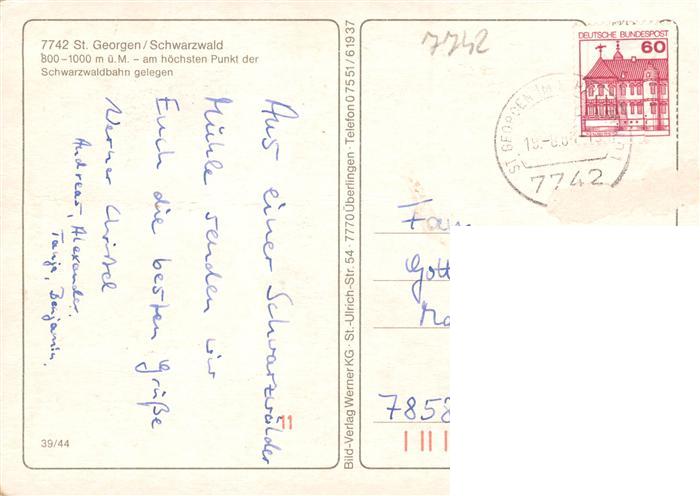 7742 St. Georgen/Schwarzwald
800–1000 m ü.M. – am höchsten Punkt der
Schwarzwaldbahn gelegen
Aus einer Schwarzwälder
Mühle senden wir
Euch die besten Grüße
Werner Christel
Andreas, Alexander,
Tanja, Benjamin.
39/44
11
Bild-Verlag Werner KG · St.-Ulrich-Str. 54 · 7770 Überlingen · Telefon 07551/61937
7742
DEUTSCHE BUNDESPOST
60
ST GEORGEN IM
7742
Fam
Gott
7858